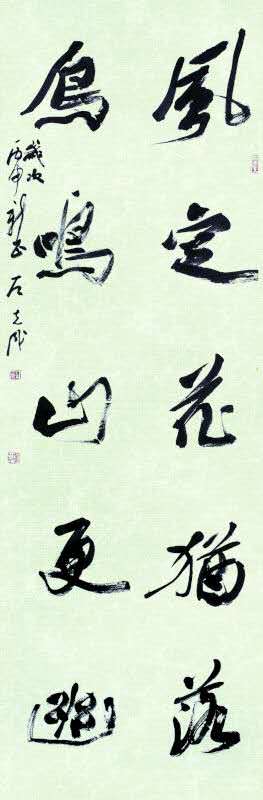 風定花猶落
鳥鳴山更幽
歲次
丙申新正石